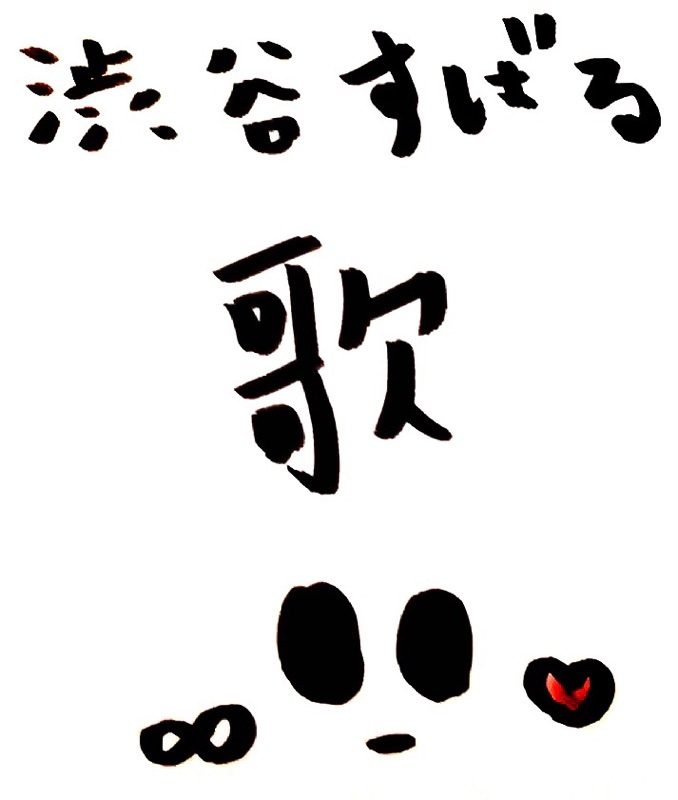 渋谷すばる
歌